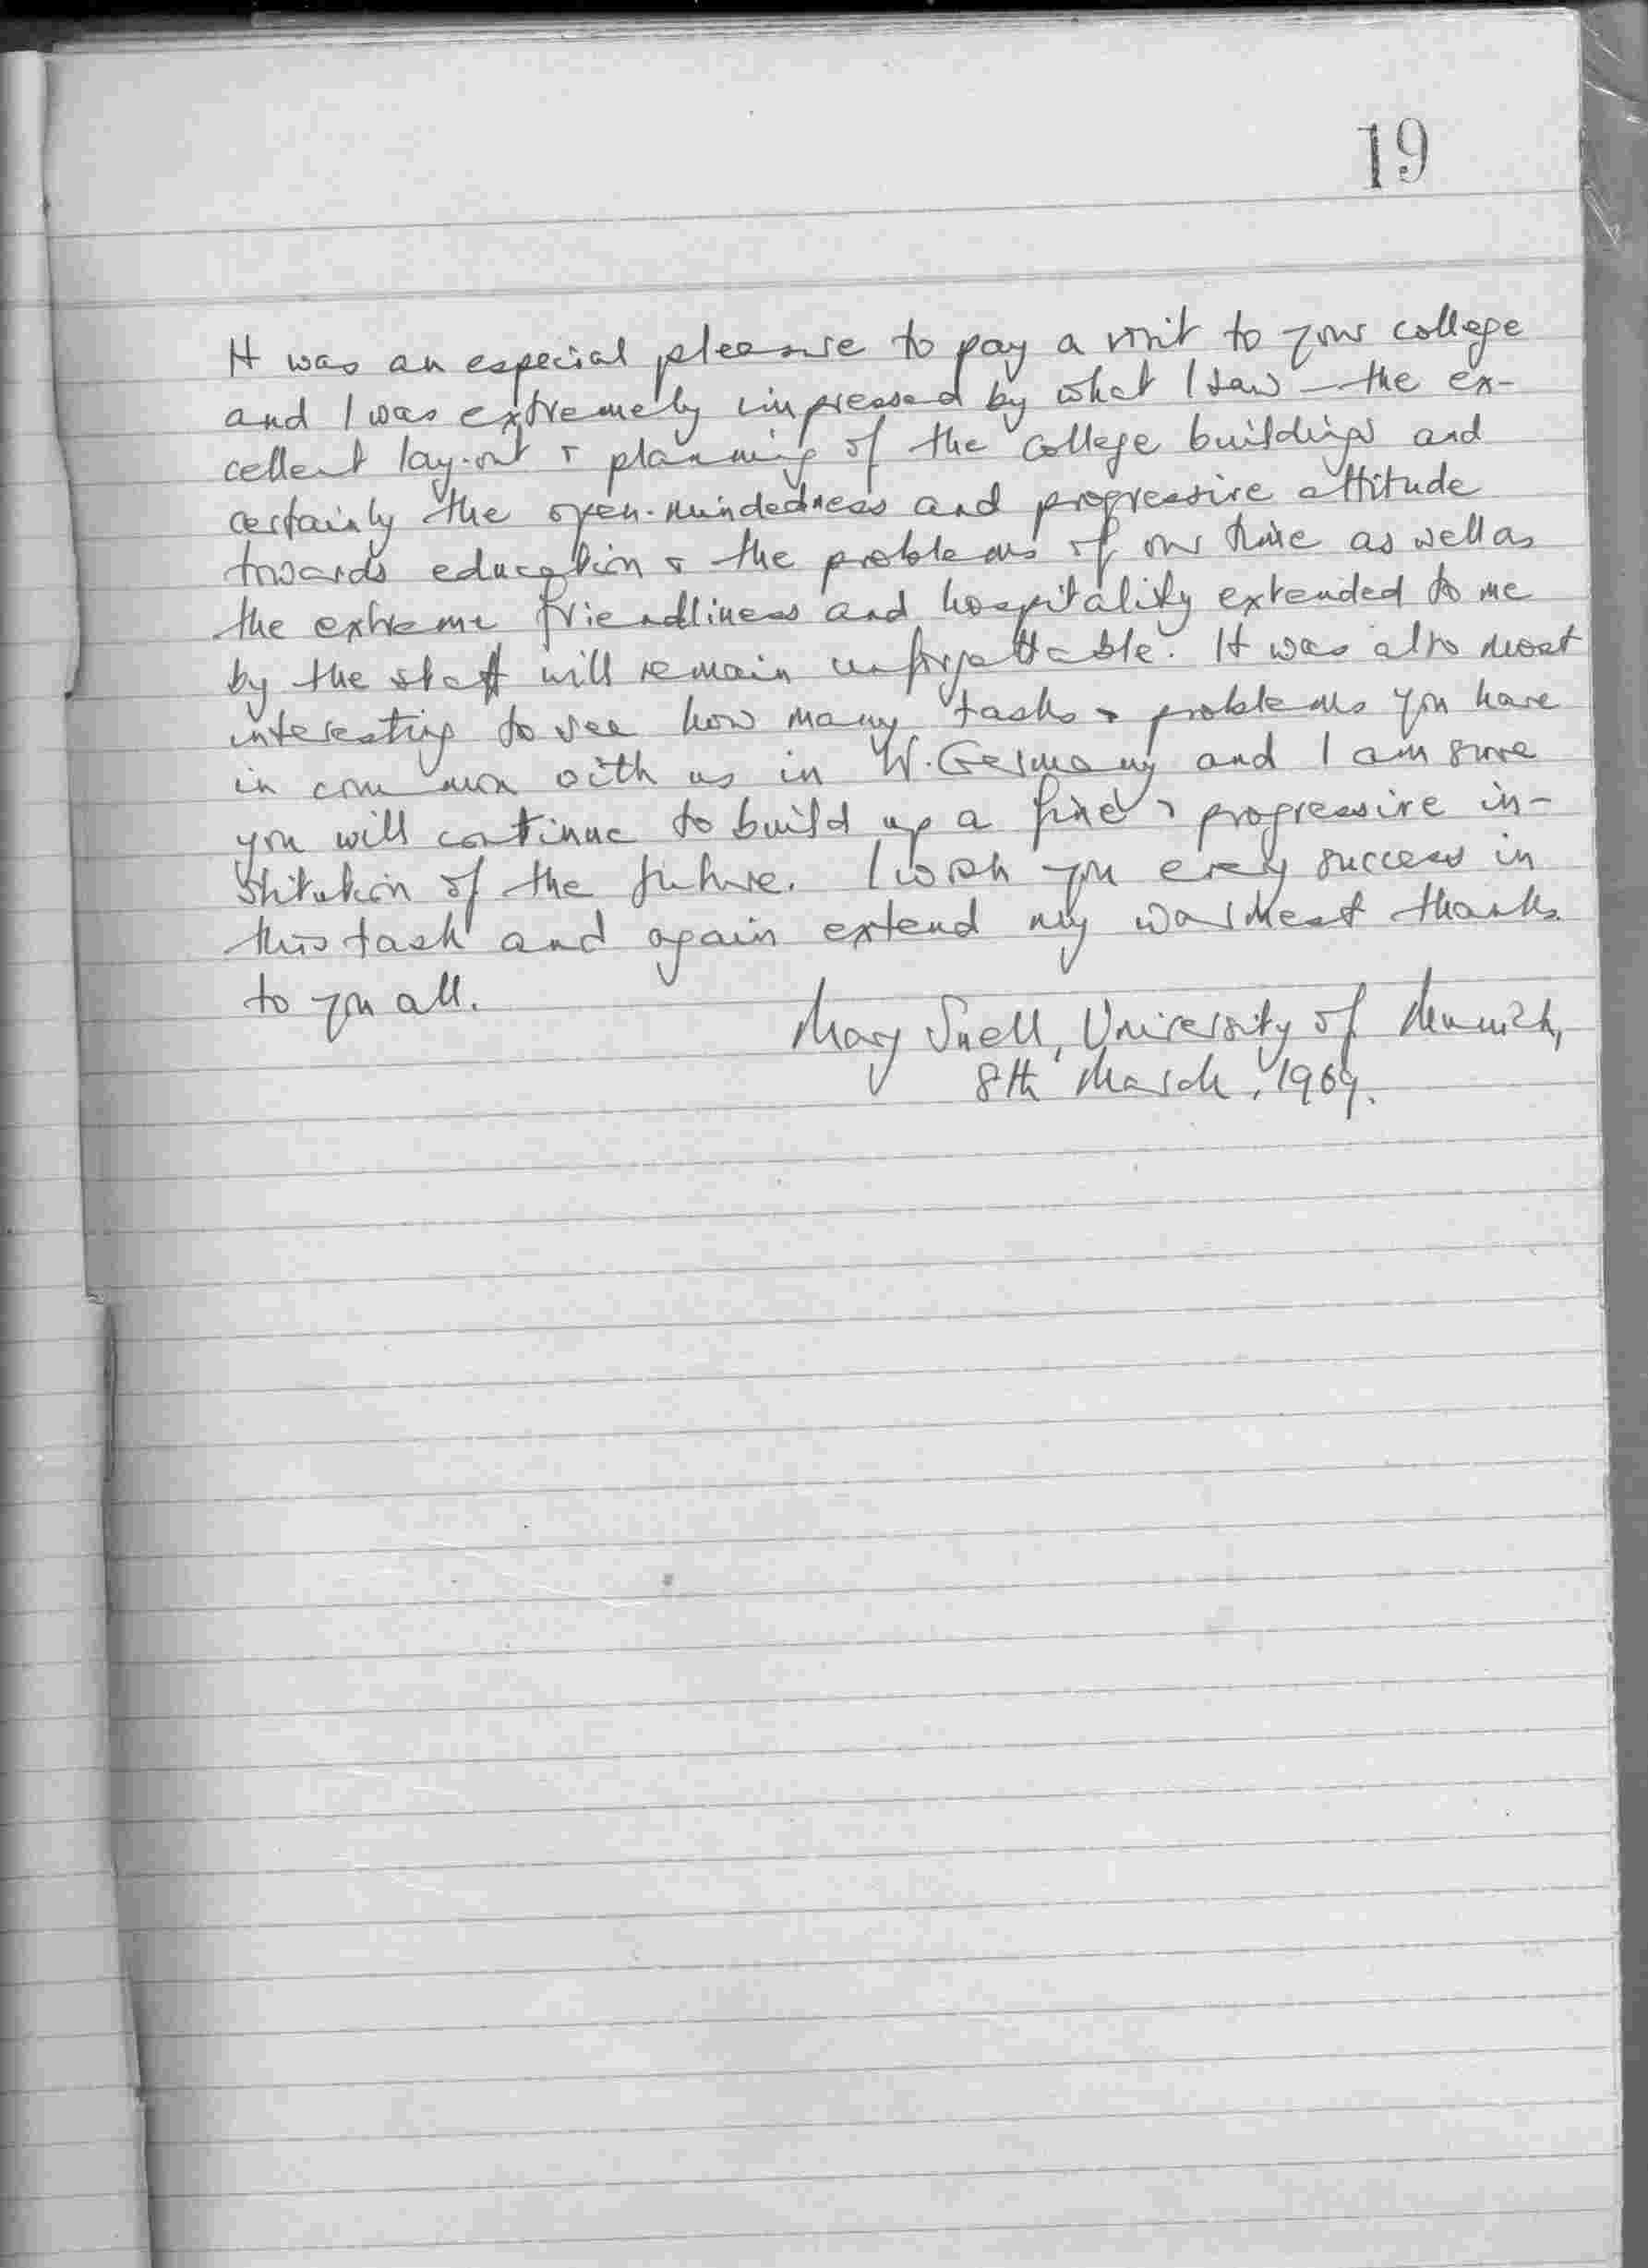 19
It was an especial pleasure to pay a visit to your college
and I was extremely impressed by what I saw — the ex-
cellent lay-out & planning of the college buildings and
certainly the open-mindedness and progressive attitude
towards education & the problems of our time as well as
the extreme friendliness and hospitality extended to me
by the staff will remain unforgettable. It was also most
interesting to see how many tasks & problems you have
in common with us in W. Germany and I am sure
you will continue to build up a fine & progressive in-
stitution of the future. I wish you every success in
this task and again extend my warmest thanks
to you all.
Mary Snell, University of Munich,
8th March, 1969.